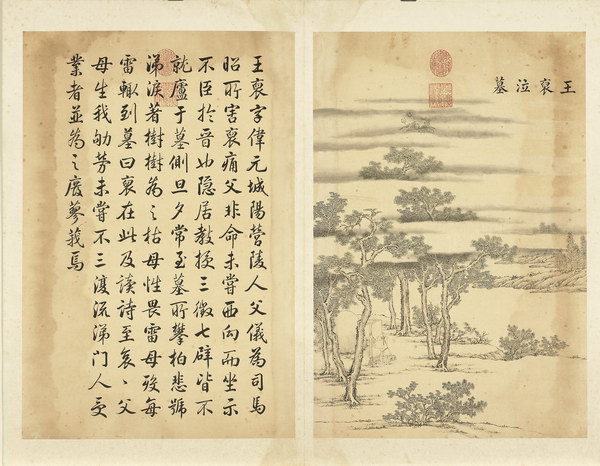 王裒泣墓
王裒字偉元城陽營陵人父儀為司馬
昭所害裒痛父非命未嘗西向而坐示
不臣於晉也隱居教授三徵七辟皆不
就廬于墓側旦夕常至墓所攀柏悲號
涕淚著樹樹為之枯母性畏雷母歿每
雷輒到墓曰裒在此及讀詩至哀〻父
母生我劬勞未嘗不三復流涕門人受
業者並為之廢蓼莪焉